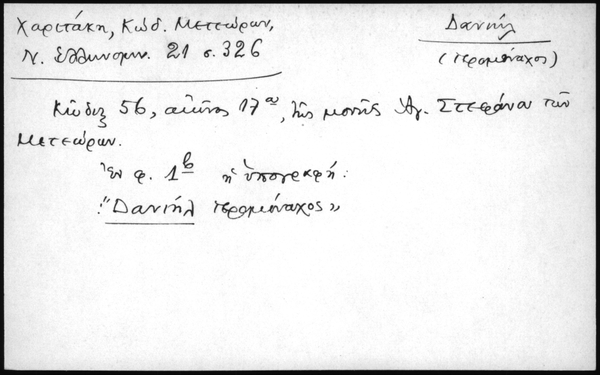 Χαριτάκη, Κώδ. Μετεώρων,
Ν. Ἑλληνομν. 21 σ. 326
Δανιήλ
(ἱερομόναχος)
Κῶδιξ 56, αἰῶνος 17ου, τῆς μονῆς Ἁγ. Στεφάνου τῶν
Μετεώρων.
Ἐν φ. 1b ἡ ὑπογραφή:
"Δανιήλ ἱερομόναχος»